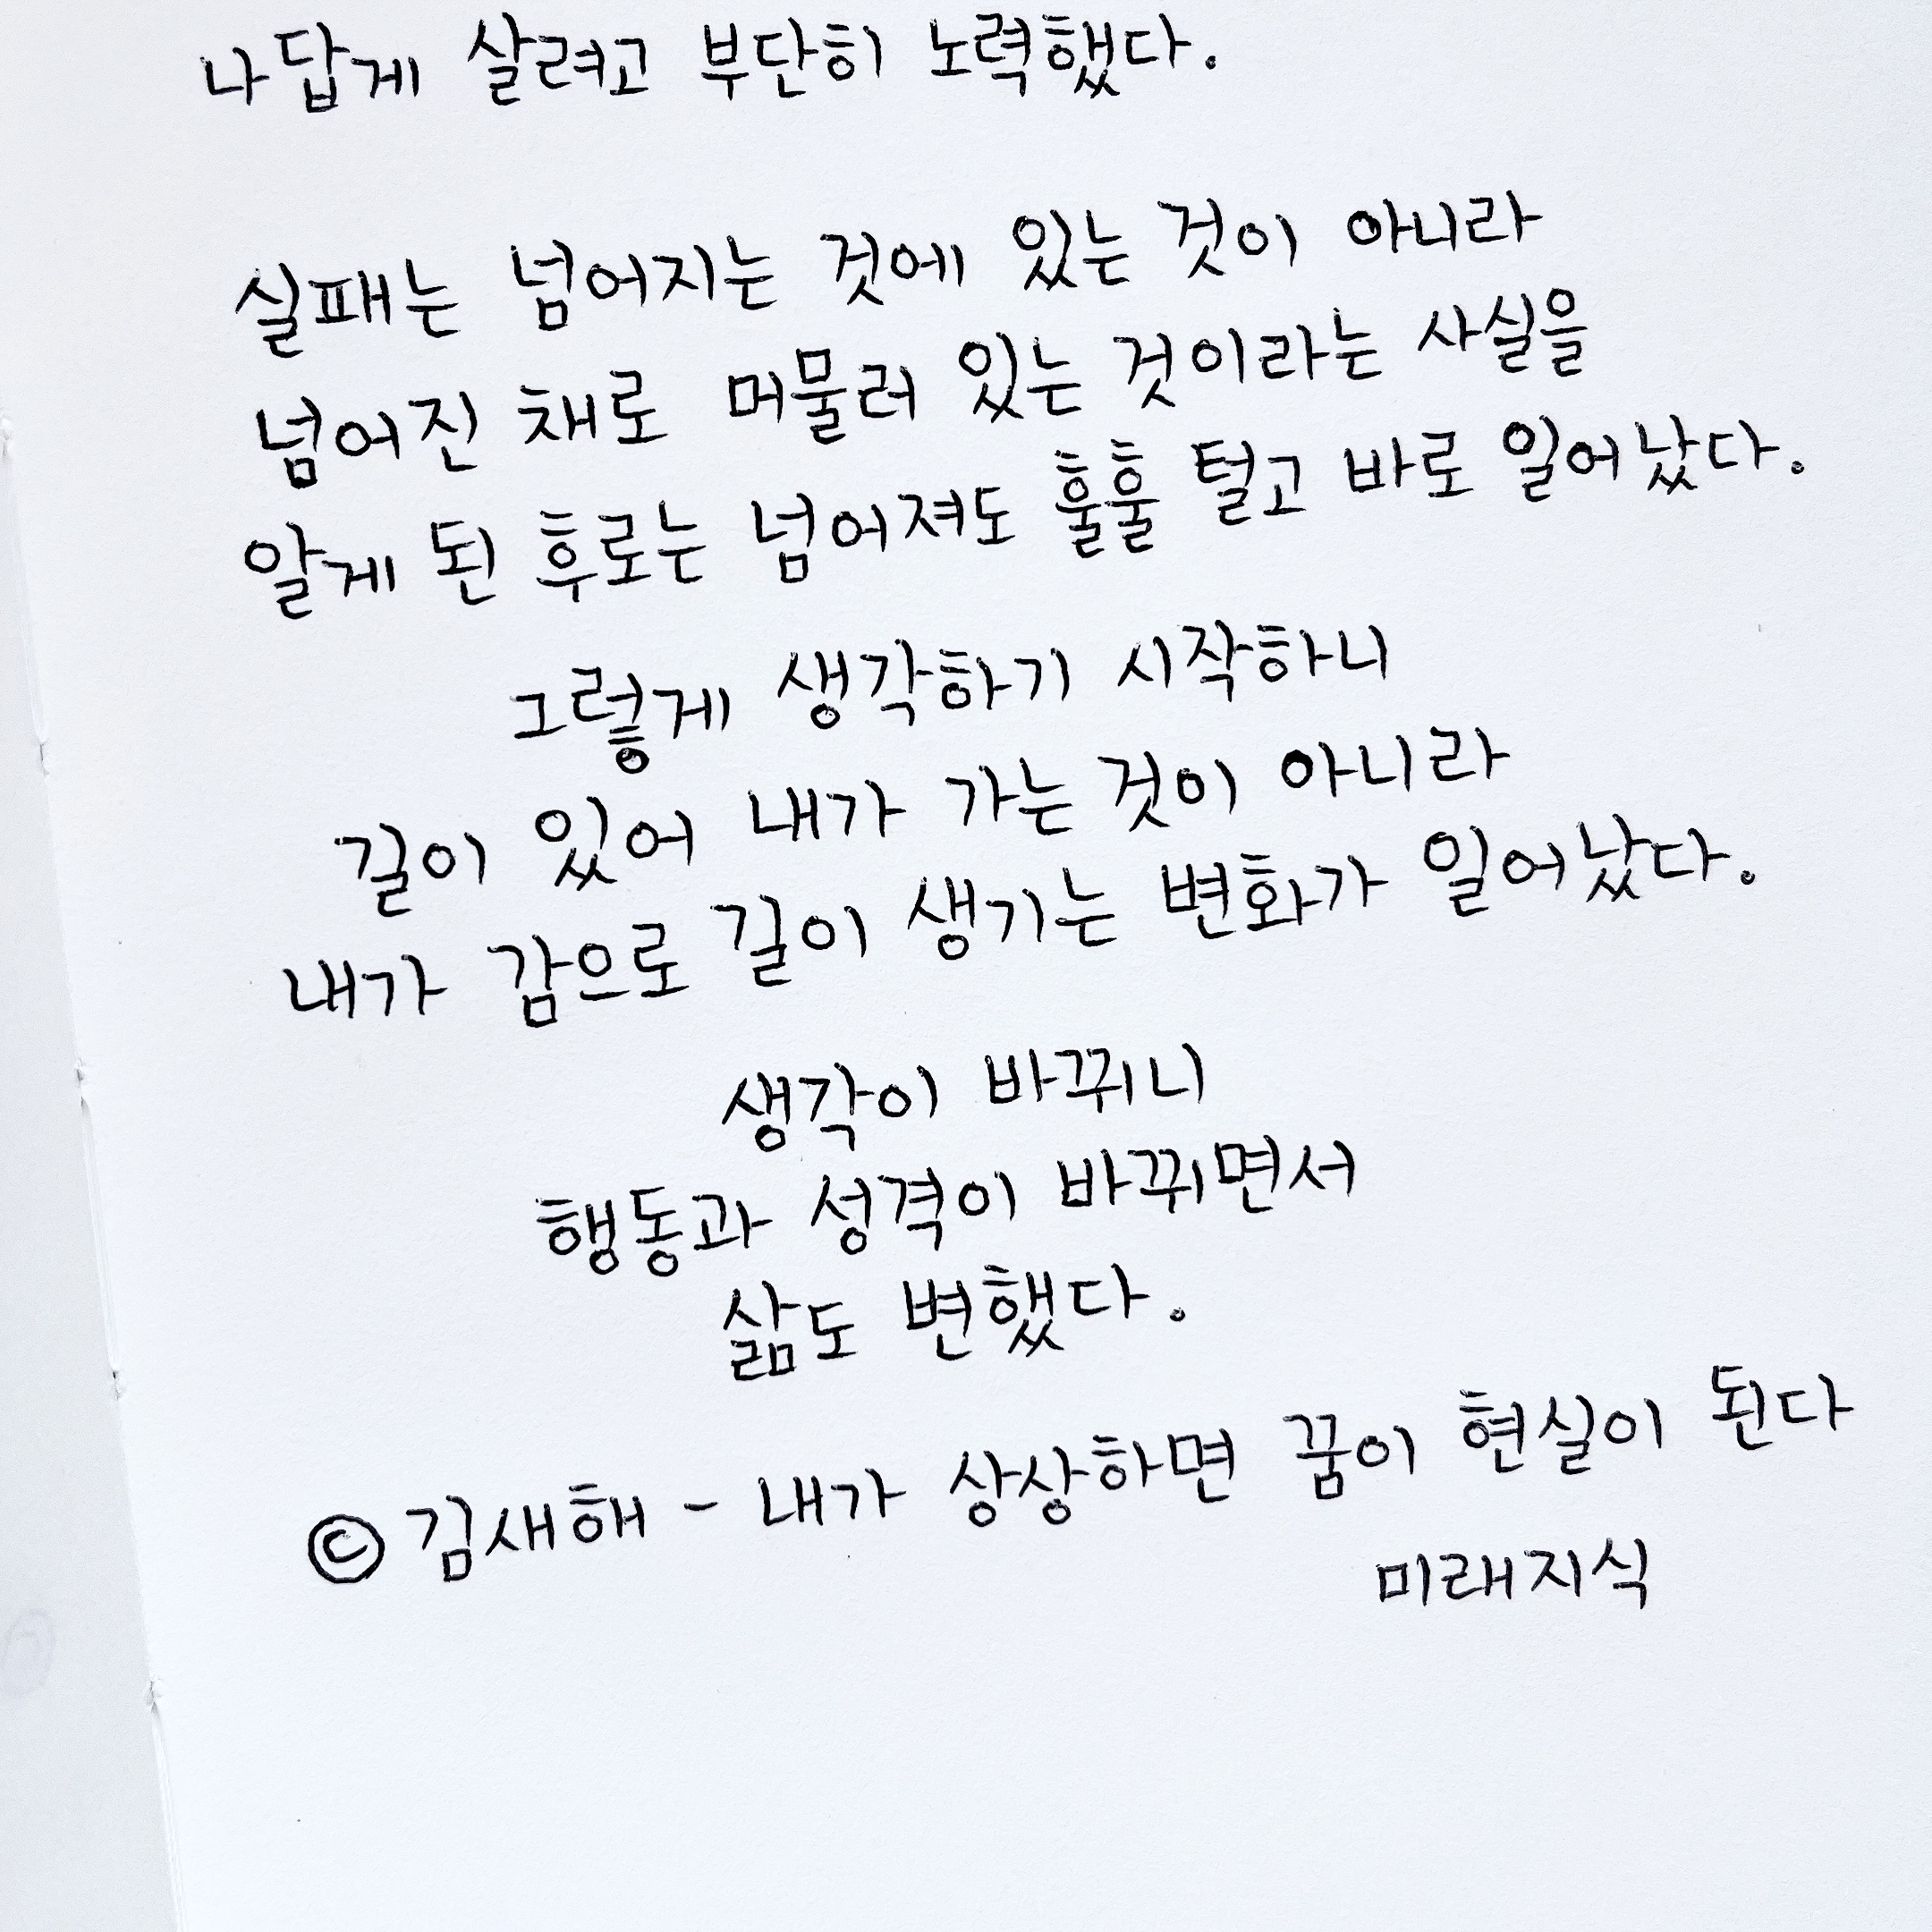 나답게 살려고 부단히 노력했다.
실패는 넘어지는 것에 있는 것이 아니라
넘어진 채로 머물러 있는 것이라는 사실을
알게 된 후로는 넘어져도 훌훌 털고 바로 일어났다.
그렇게 생각하기 시작하니
길이 있어 내가 가는 것이 아니라
내가 감으로 길이 생기는 변화가 일어났다.
생각이 바뀌니
행동과 성격이 바뀌면서
삶도 변했다.
© 김새해 - 내가 상상하면 꿈이 현실이 된다
미래지식